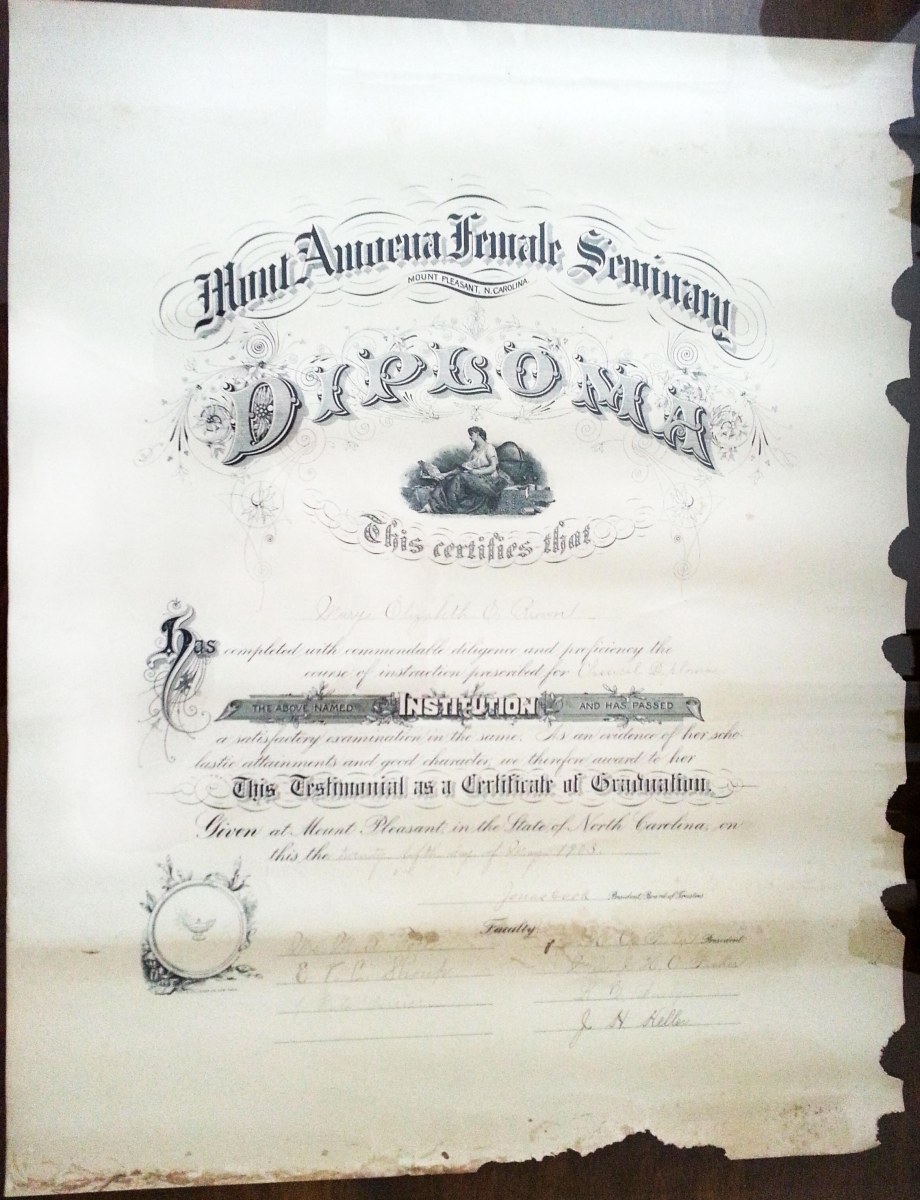 Mount Amoena Female Seminary
MOUNT PLEASANT, N. CAROLINA.
DIPLOMA
This certifies that
Mary Elizabeth C.
Has completed with commendable diligence and proficiency the
course of instruction prescribed for
THE ABOVE NAMED INSTITUTION AND HAS PASSED
a satisfactory examination in the same. As an evidence of her scho-
lastic attainments and good character, we therefore award to her
This Testimonial as a Certificate of Graduation.
Given at Mount Pleasant, in the State of North Carolina, on
this the twenty fifth day of May 1903.
Jonas Cook President Board of Trustees
Faculty
President
J. H. Keller